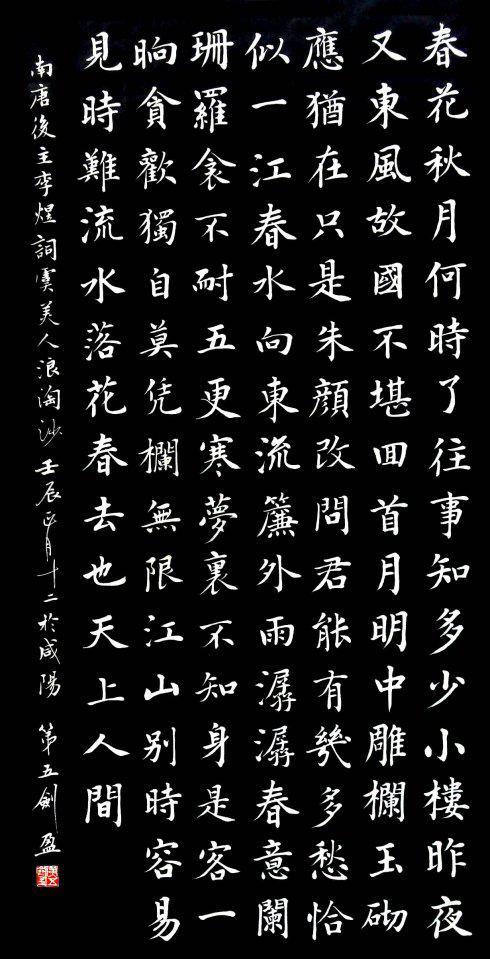 春花秋月何時了往事知多少小樓昨夜
又東風故國不堪囬首月明中雕欄玉砌
應猶在只是朱顔改問君能有幾多愁恰
似一江春水向東流簾外雨潺潺春意闌
珊羅衾不耐五更寒夢裏不知身是客一
晌貪歡獨自莫凭欄無限江山别時容易
見時難流水落花春去也天上人間
南唐後主李煜詞虞美人浪淘沙 壬辰正月十二於咸陽 第五劍盈